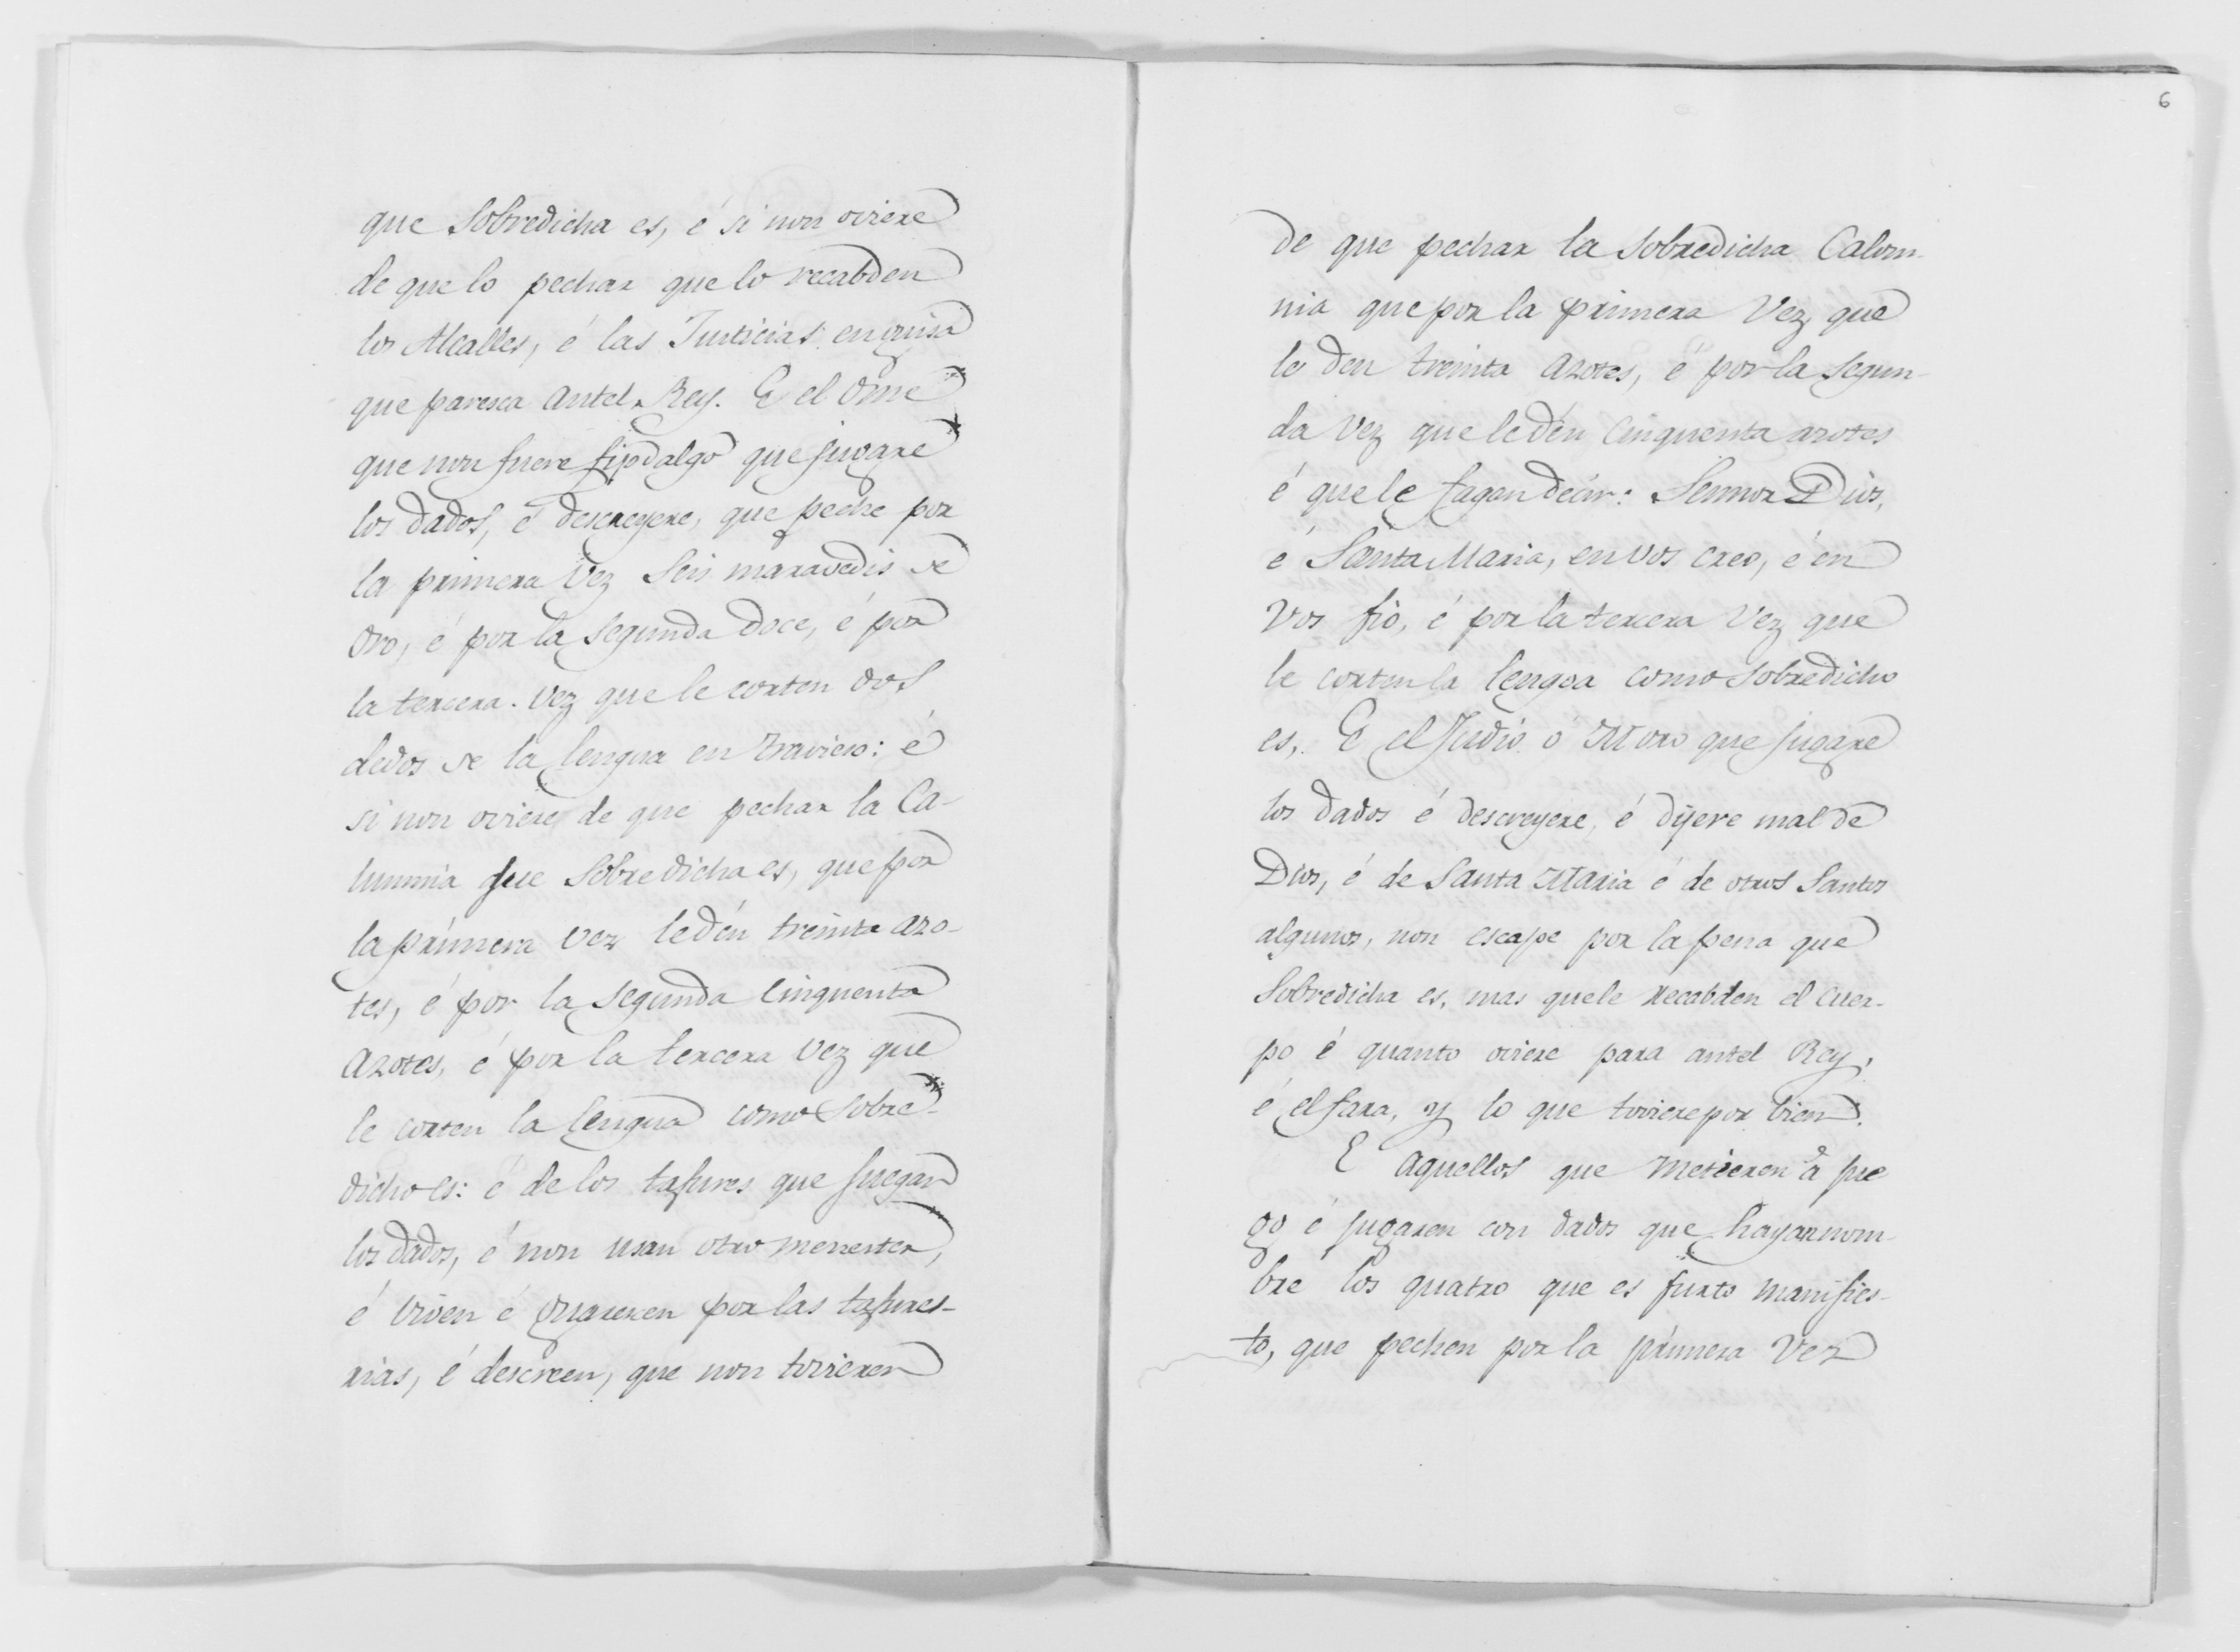 que Sobredicha es, é si non oviere
de que lo pechar que lo recabden
los Alcalles, é las Justicias en guisa
que paresca antel Rey. E el ome
que non fuere fijodalgo que jugare
los dados, é descreyere, que peche por
la primera vez Seis maravedis de
oro, é por la segunda doce, é por
la tercera vez que le corten dos
dedos de la lengua en travieso: é
si non oviere de que pechar la Ca-
lunnia que Sobredicha es, que por
la primera vez le dén treinta azo-
tes, é por la segunda cinquenta
azotes, é por la tercera vez que
le corten la lengua como Sobre-
dicho es: é de los tafures que juegan
los dados, é non usan otro menester,
é viven é guarecen por las tafures-
rias, é descreen, que non tovieren
6
de que pechar la Sobredicha Calom-
nia que por la primera Vez, que
le den treinta azotes, é por la segun-
da vez que le dén Cinquenta azotes
é que le fagan decir: Sennor Dios,
é Santa Maria, en vos creo, é en
Vos fio, é por la tercera Vez que
le corten la lengoa como Sobredicho
es. E el Judio ó Moro que jugare
los dados é descreyere, é dijere mal de
Dios, é de Santa Maria é de otros Santos
algunos, non escape por la pena que
Sobredicha es, mas quele recabden el Cuer-
po é quanto oviere para antel Rey,
é el fara, y lo que toviere por bien.
E aquellos que metieren á jue
go é jugaren con dados que hayan nom-
bre los quatro que es furto manifies-
to, que pechen por la primera Vez